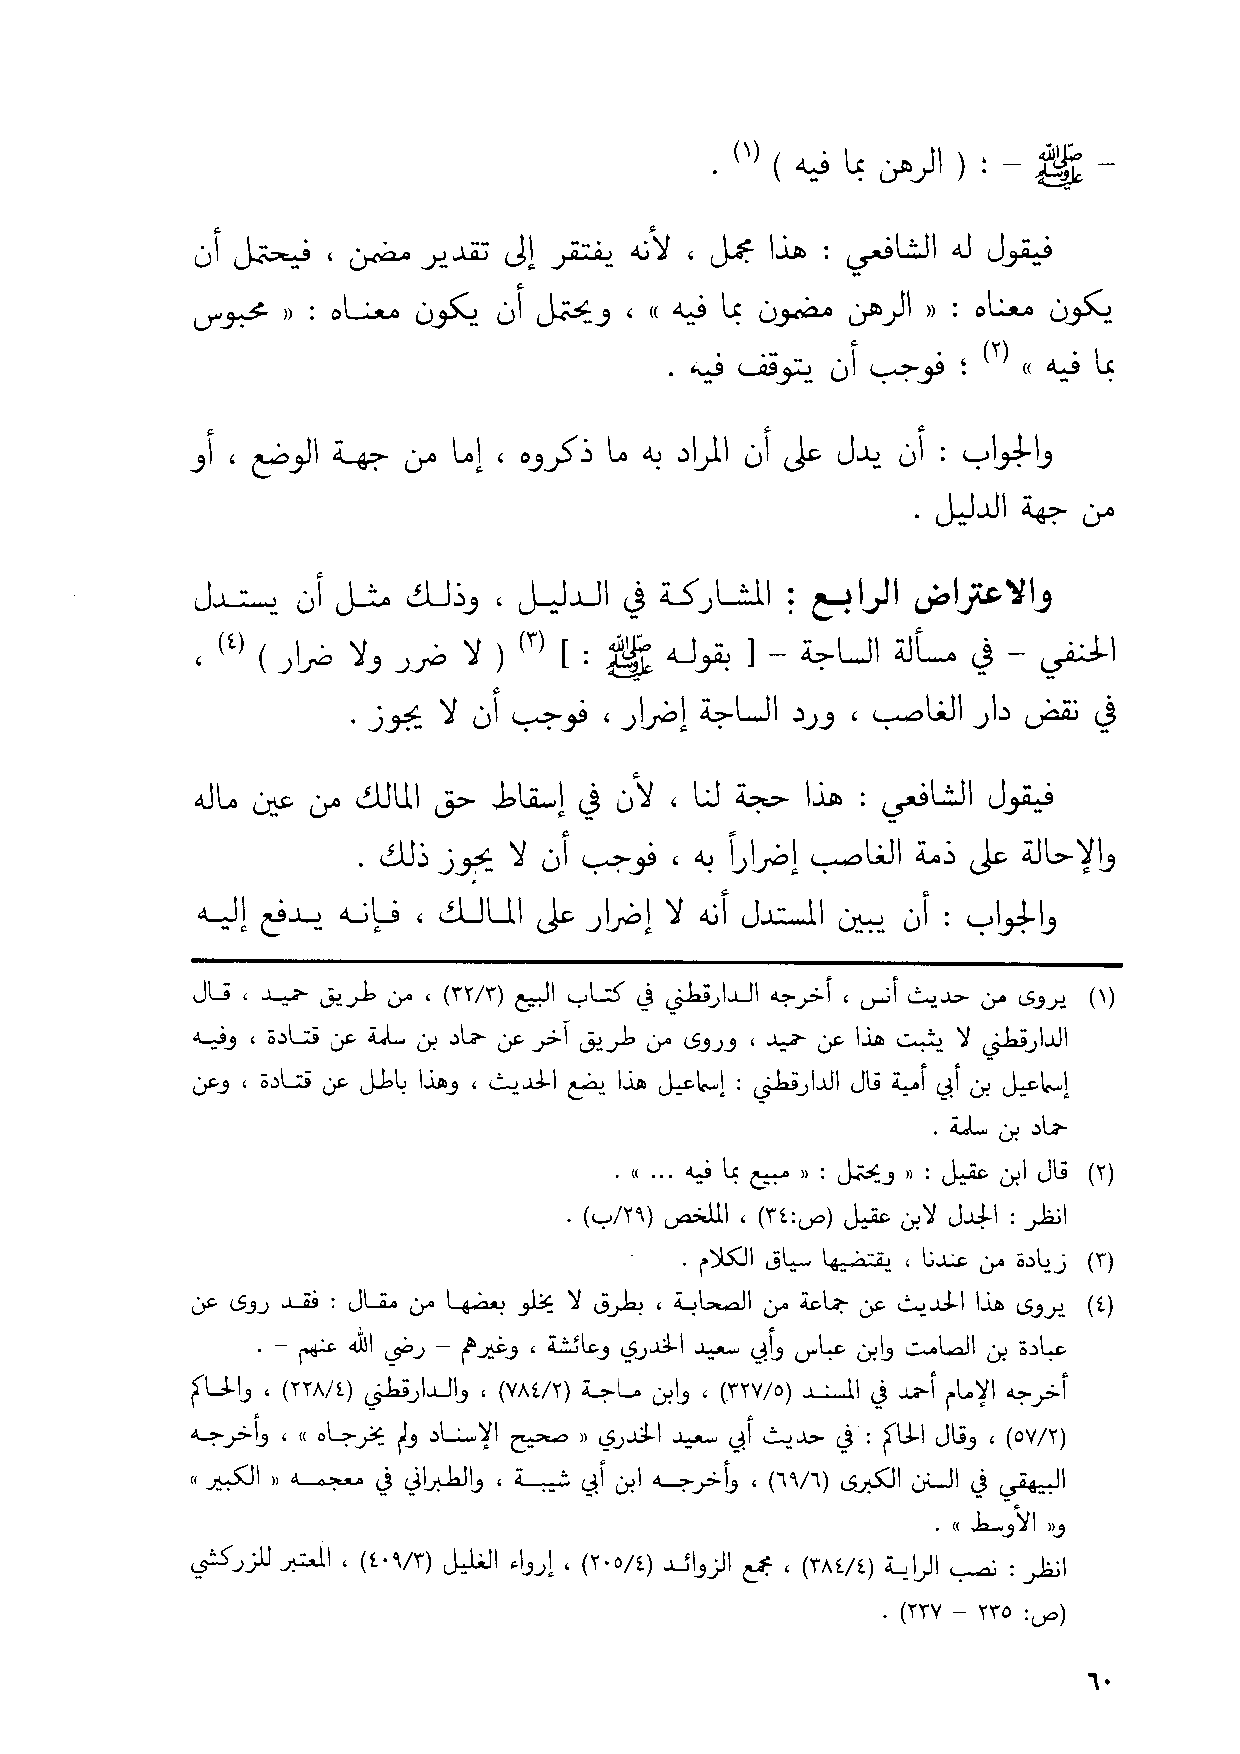 - ﷺ - : ( الرهن بما فيه ) (١) .
فيقول له الشافعي : هذا مجمل ، لأنه يفتقر إلى تقدير مضمن ، فيحتمل أن
يكون معناه : « الرهن مضمون بما فيه » ، ويحتمل أن يكون معناه : « محبوس
بما فيه » (٢) ؛ فوجب أن يتوقف فيه .
والجواب : أن يدل على أن المراد به ما ذكروه ، إما من جهة الوضع ، أو
من جهة الدليل .
والاعتراض الرابع : المشاركة في الدليل ، وذلك مثل أن يستدل
الحنفي - في مسألة الساجة - [ بقوله ﷺ : ] (٣) ( لا ضرر ولا ضرار ) (٤) ،
في نقض دار الغاصب ، ورد الساجة إضرار ، فوجب أن لا يجوز .
فيقول الشافعي : هذا حجة لنا ، لأن في إسقاط حق المالك من عين ماله
والإحالة على ذمة الغاصب إضراراً به ، فوجب أن لا يجوز ذلك .
والجواب : أن يبين المستدل أنه لا إضرار على المالك ، فإنه يدفع إليه
(١) يروى من حديث أنس ، أخرجه الدارقطني في كتاب البيع (٣٢/٣) ، من طريق حميد ، قال
الدارقطني لا يثبت هذا عن حميد ، وروى من طريق آخر عن حماد بن سلمة عن قتادة ، وفيه
إسماعيل بن أبي أمية قال الدارقطني : إسماعيل هذا يضع الحديث ، وهذا باطل عن قتادة ، وعن
حماد بن سلمة .
(٢) قال ابن عقيل : « ويحتمل : « مبيع بما فيه ... » .
انظر : الجدل لابن عقيل (ص:٣٤) ، الملخص (٢٩/ب) .
(٣) زيادة من عندنا ، يقتضيها سياق الكلام .
(٤) يروى هذا الحديث عن جماعة من الصحابة ، بطرق لا يخلو بعضها من مقال : فقد روى عن
عبادة بن الصامت وابن عباس وأبي سعيد الخدري وعائشة ، وغيرهم - رضي الله عنهم - .
أخرجه الإمام أحمد في المسند (٣٢٧/٥) ، وابن ماجة (٧٨٤/٢) ، والدارقطني (٢٢٨/٤) ، والحاكم
(٥٧/٢) ، وقال الحاكم : في حديث أبي سعيد الخدري « صحيح الإسناد ولم يخرجاه » ، وأخرجه
البيهقي في السنن الكبرى (٦٩/٦) ، وأخرجه ابن أبي شيبة ، والطبراني في معجمه « الكبير »
و« الأوسط » .
انظر : نصب الراية (٣٨٤/٤) ، مجمع الزوائد (٢٠٥/٤) ، إرواء الغليل (٤٠٩/٣) ، المعتبر للزركشي
(ص: ٢٣٥ - ٢٣٧) .
٦٠